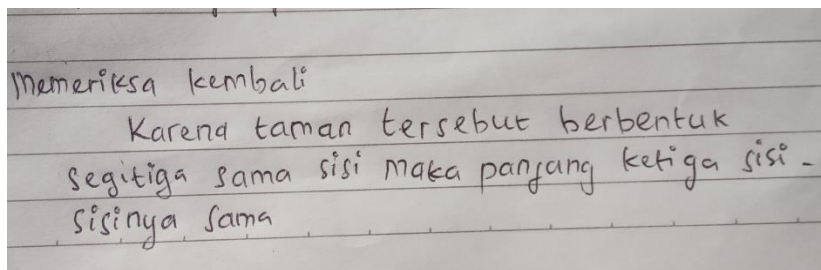 Memeriksa kembali
Karena taman tersebut berbentuk
segitiga sama sisi maka panjang ketiga sisi-
sisinya sama